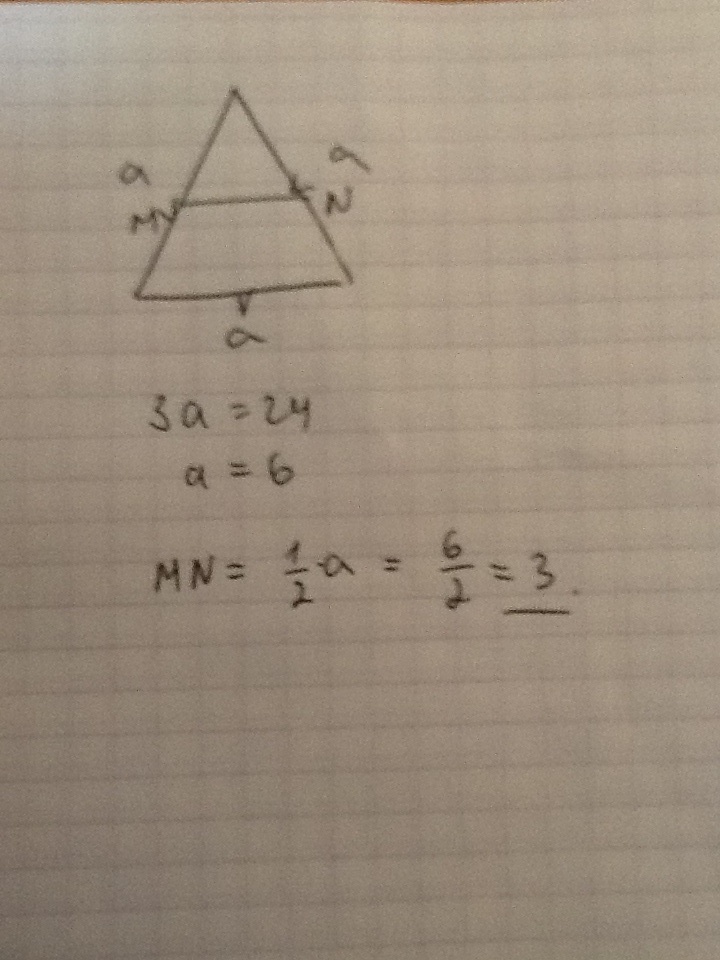 a a
M N
a
3a = 24
a = 6
MN = 1/2 · a = 6/2 = 3.